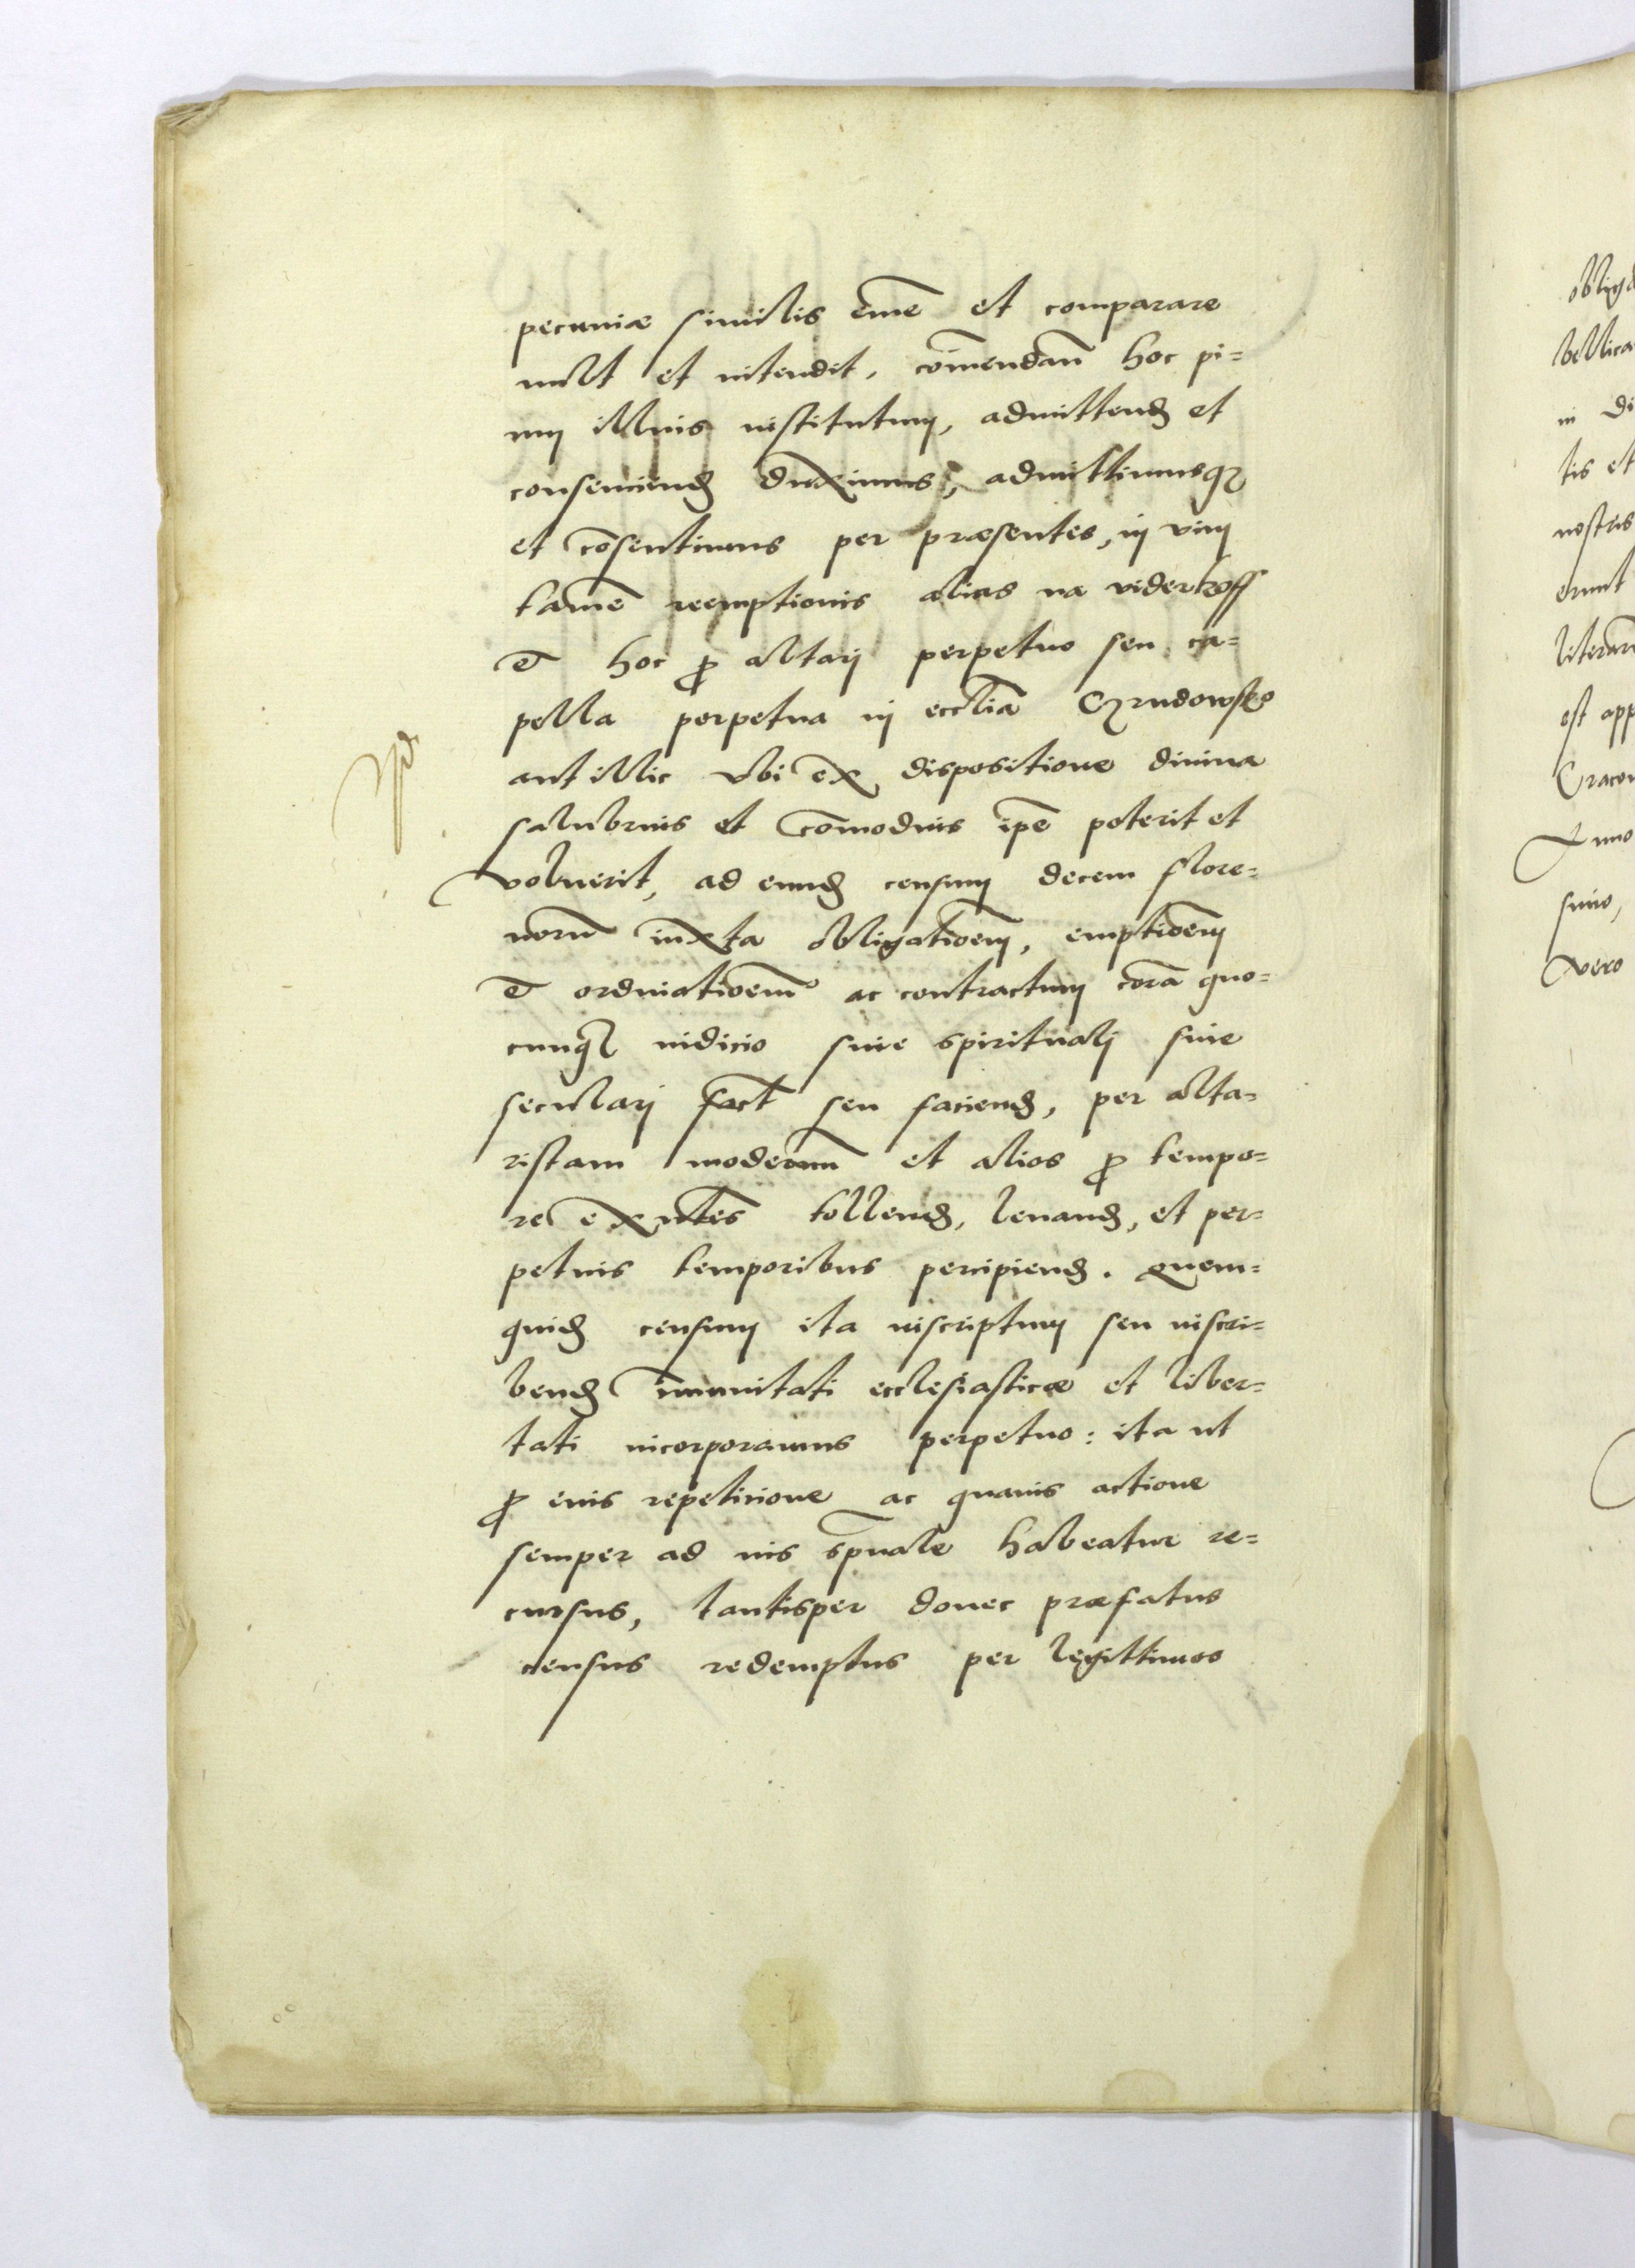 pecuniæ similis eme͂ et comparare
uult et intendit, co͂mendan͂ hoc pi=
um illius institutum, admittend et
consenciend duximus, admittimusq3
et co͂sentimus per præsentes, in vim
tame͂ reemptionis alias na viderkoff
et hoc ꝓ altari perpetuo seu ca=
pella perpetua in eccl͂ia Czrudowsko
aut illic vbi ex dispositione diuina
salubrius et co͂modius ip͂e poterit et
voluerit, ad eund censum decem flore=
noru͂ iuxta obligatio͂em, emptio͂em
et ordinatio͂em ac contractum cora͂ quo=
cunq3 iudicio siue spirituali siue
seculari fact͂ seu faciend, per alta=
ristam modernu͂ et alios ꝓ tempo=
re exn͂tes tollend, leuand, et per=
petuis temporibus percipiend. quem=
quid censum ita inscriptum seu inscri=
bend im͂unitati ecclesiasticæ et liber=
tati incorporamus perpetuo: ita ut
ꝓ eius repeticione ac quauis actione
semper ad ius sp͂uale habeatur re=
cursus, tantisper donec præfatus
census redemptus per legittimos
oblig
bellica
in di
tis et
nostris
erunt
literar
est app
Cracou
Anno
simo,
vero